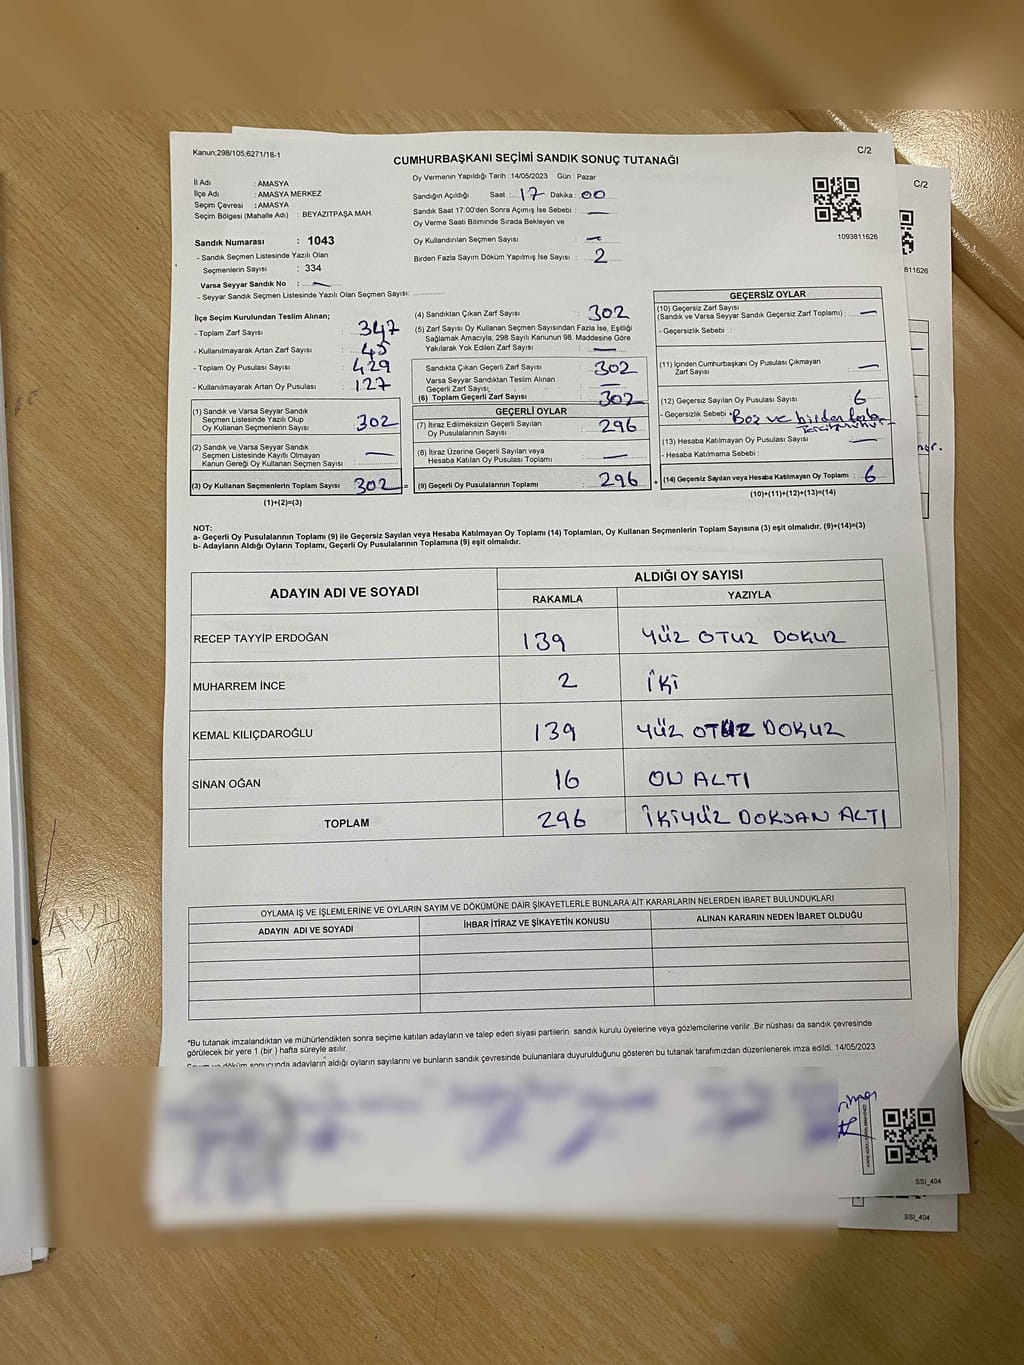 Kanun;298/105;6271/18-1
CUMHURBAŞKANI SEÇİMİ SANDIK SONUÇ TUTANAĞI
C/2
İl Adı : AMASYA
İlçe Adı : AMASYA MERKEZ
Seçim Çevresi : AMASYA
Seçim Bölgesi (Mahalle Adı) : BEYAZITPAŞA MAH.
Sandık Numarası : 1043
- Sandık Seçmen Listesinde Yazılı Olan
Seçmenlerin Sayısı : 334
Varsa Seyyar Sandık No : —
- Seyyar Sandık Seçmen Listesinde Yazılı Olan Seçmen Sayısı:
Oy Vermenin Yapıldığı Tarih : 14/05/2023 Gün : Pazar
Sandığın Açıldığı Saat : 17 Dakika : 00
Sandık Saat 17:00'den Sonra Açımış İse Sebebi : —
Oy Verme Saati Bitiminde Sırada Bekleyen ve
Oy Kullandırılan Seçmen Sayısı : —
Birden Fazla Sayım Döküm Yapılmış İse Sayısı : 2
1093811626
C/2
811626
İlçe Seçim Kurulundan Teslim Alınan;
- Toplam Zarf Sayısı : 347
- Kullanılmayarak Artan Zarf Sayısı : 45
- Toplam Oy Pusulası Sayısı : 429
- Kullanılmayarak Artan Oy Pusulası : 127
(1) Sandık ve Varsa Seyyar Sandık
Seçmen Listesinde Yazılı Olup
Oy Kullanan Seçmenlerin Sayısı : 302
(2) Sandık ve Varsa Seyyar Sandık
Seçmen Listesinde Kayıtlı Olmayan
Kanun Gereği Oy Kullanan Seçmen Sayısı : —
(3) Oy Kullanan Seçmenlerin Toplam Sayısı : 302 =
(1)+(2)=(3)
(4) Sandıktan Çıkan Zarf Sayısı : 302
(5) Zarf Sayısı Oy Kullanan Seçmen Sayısından Fazla İse, Eşitliği
Sağlamak Amacıyla, 298 Sayılı Kanunun 98. Maddesine Göre
Yakılarak Yok Edilen Zarf Sayısı : —
Sandıkta Çıkan Geçerli Zarf Sayısı : 302
Varsa Seyyar Sandıktan Teslim Alınan
Geçerli Zarf Sayısı : —
(6) Toplam Geçerli Zarf Sayısı : 302
GEÇERLİ OYLAR
(7) İtiraz Edilmeksizin Geçerli Sayılan
Oy Pusulalarının Sayısı : 296
(8) İtiraz Üzerine Geçerli Sayılan veya
Hesaba Katılan Oy Pusulası Toplamı : —
(9) Geçerli Oy Pusulalarının Toplamı : 296 +
GEÇERSİZ OYLAR
(10) Geçersiz Zarf Sayısı
(Sandık ve Varsa Seyyar Sandık Geçersiz Zarf Toplamı) : —
- Geçersizlik Sebebi :
(11) İçinden Cumhurbaşkanı Oy Pusulası Çıkmayan
Zarf Sayısı : —
(12) Geçersiz Sayılan Oy Pusulası Sayısı : 6
- Geçersizlik Sebebi : Boş ve birden fazla
(13) Hesaba Katılmayan Oy Pusulası Sayısı : —
- Hesaba Katılmama Sebebi :
(14) Geçersiz Sayılan veya Hesaba Katılmayan Oy Toplamı : 6
(10)+(11)+(12)+(13)=(14)
NOT:
a- Geçerli Oy Pusulalarının Toplamı (9) ile Geçersiz Sayılan veya Hesaba Katılmayan Oy Toplamı (14) Toplamları, Oy Kullanan Seçmenlerin Toplam Sayısına (3) eşit olmalıdır. (9)+(14)=(3)
b- Adayların Aldığı Oyların Toplamı, Geçerli Oy Pusulalarının Toplamına (9) eşit olmalıdır.
ADAYIN ADI VE SOYADI
ALDIĞI OY SAYISI
RAKAMLA YAZIYLA
RECEP TAYYİP ERDOĞAN 139 YÜZ OTUZ DOKUZ
MUHARREM İNCE 2 İKİ
KEMAL KILIÇDAROĞLU 139 YÜZ OTUZ DOKUZ
SİNAN OĞAN 16 ON ALTI
TOPLAM 296 İKİYÜZ DOKSAN ALTI
OYLAMA İŞ VE İŞLEMLERİNE VE OYLARIN SAYIM VE DÖKÜMÜNE DAİR ŞİKAYETLERLE BUNLARA AİT KARARLARIN NELERDEN İBARET BULUNDUKLARI
ADAYIN ADI VE SOYADI İHBAR İTİRAZ VE ŞİKAYETİN KONUSU ALINAN KARARIN NEDEN İBARET OLDUĞU
*Bu tutanak imzalandıktan ve mühürlendikten sonra seçime katılan adayların ve talep eden siyasi partilerin sandık kurulu üyelerine veya gözlemcilerine verilir .Bir nüshası da sandık çevresinde
görülecek bir yere 1 (bir ) hafta süreyle asılır.
Sayım ve döküm sonucunda adayların aldığı oyların sayılarını ve bunların sandık çevresinde bulunanlara duyurulduğunu gösteren bu tutanak tarafımızdan düzenlenerek imza edildi. 14/05/2023
SSI_404
SSI_404